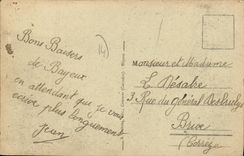 Bons Baisers
de Bayeux
en attendant que je vous
écrive plus longuement
Jean
14
Monsieur et Madame
L. Désabre
3 Rue du Général
Brive
(Corrèze)